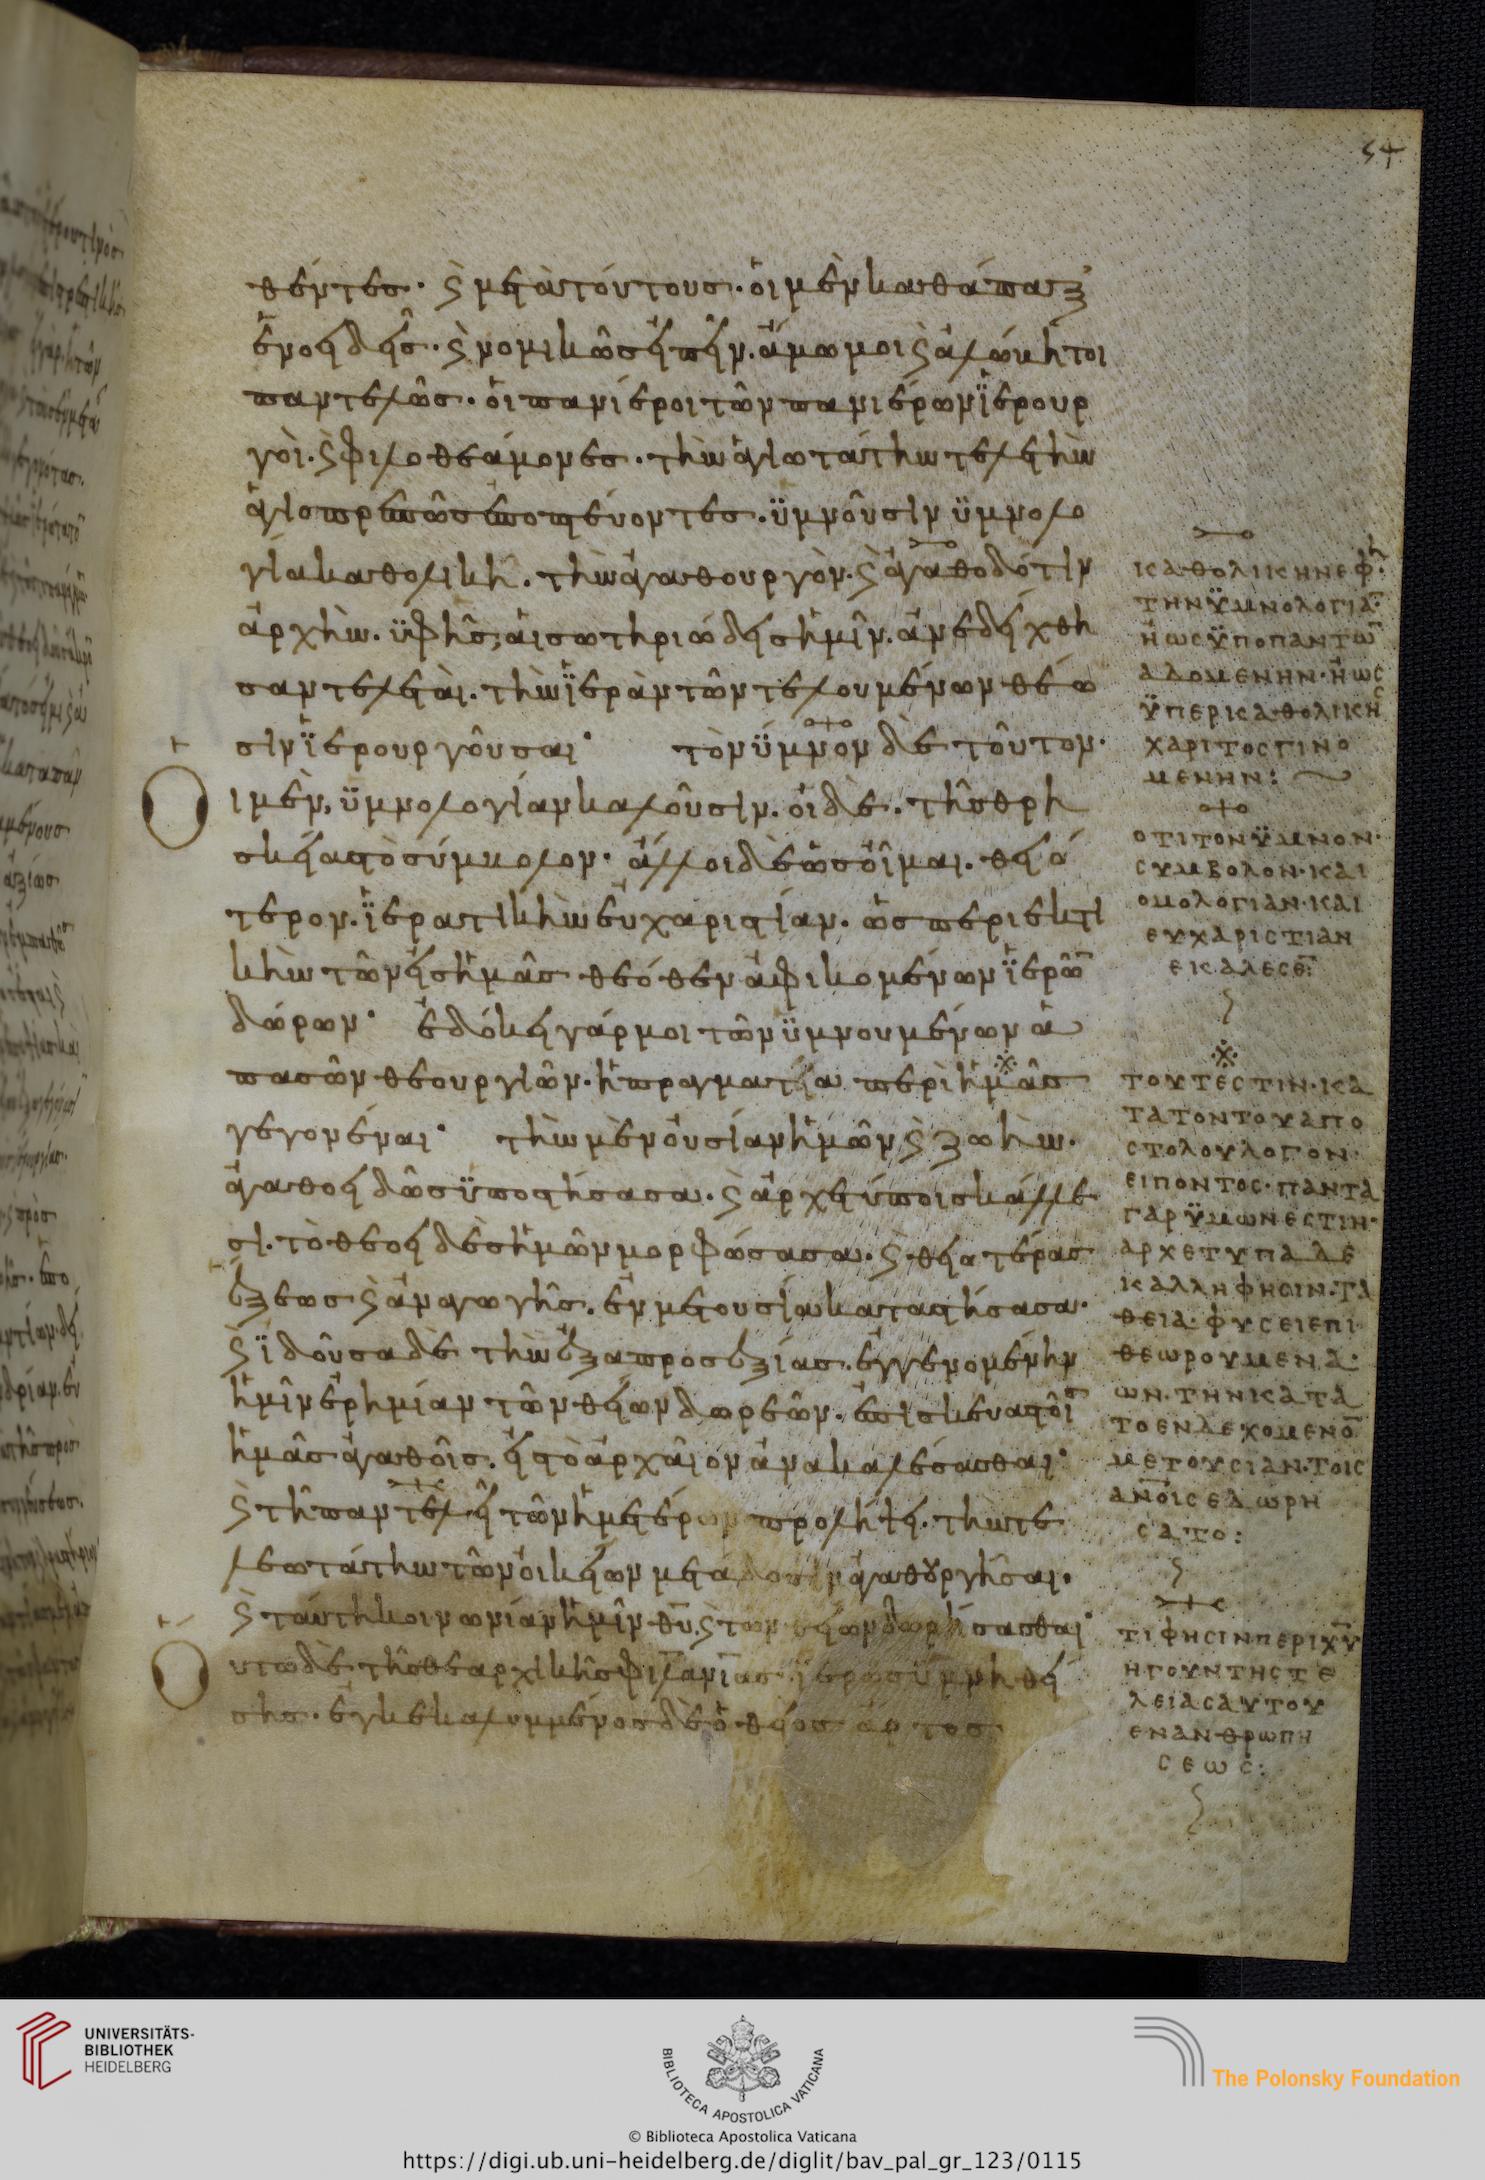 54
θέντες· ϛ μετὰ τούτους· οἱ μὲν καθάπαξ
ἑνοειδεῖς· ϛ νομικῶς εἰπεῖν. ἄμωμοι ϛ ἀλώβητοι
παντελῶς· οἱ πανίεροι τῶν πανιέρων ἱερουρ
γοὶ· ϛ φιλοθεάμονες. τὴν ἁγιωτάτην τελετὴν
ἁγιοπρεπῶς ἐποπτεύοντες· ὑμνοῦσιν ὑμνολο
γία καθολικῆ. τὴν ἀγαθουργὸν· ϛ ἀγαθοδότιν
ἀρχὴν. ὑφ῾ῆς, αἱ σωτηριώδεις ἡμῖν. ἀνεδείχθη
σαν τελεταὶ. τὴν ἱερὰν τῶν τελουμένων θέω
σιν ἱερουργοῦσαι· τὸν ὕμνον δὲ τοῦτον·
Οἱ μὲν, ὑμνολογίαν καλοῦσιν. οἱ δὲ. τῆς θρη
σκείας τὸ σύμβολον· ἄλλοι δὲ ὡς οἶμαι. θειό
τερον. ἱεραρχικὴν εὐχαριστίαν. ὡς περιεκτι
κὴν τῶν εἰς ἡμᾶς θεόθεν ἀφικομένων ἱερῶν
δώρων· ἐδόκει γάρ μοι τῶν ὑμνουμένων ἁ
πασῶν θεουργιῶν· ἡ πραγματεία περὶ ἡμᾶς
γεγονέναι· τὴν μὲν οὐσίαν ἡμῶν ϛ ζωὴν.
ἀγαθοειδῶς ὑποστήσασα. ϛ ἀρχετύποις κάλλε
σι. τὸ θεοειδὲς ἡμῶν μορφώσασα. ϛ θειοτέρας
ἕξεως ϛ ἀναγωγῆς. ἐν μετουσία καταστήσασα·
ϛ ἰδοῦσα δὲ τὴν ἐξ ἀπροσεξίας. ἐγγενομένην
ἡμῖν ἐρημίαν τῶν θείων δωρεῶν. ἐπισκευαστοῖς
ἡμᾶς ἀγαθοῖς. εἰς τὸ ἀρχαῖον ἀνακαλέσασθαι·
ϛ τῆ παντελεῖ τῶν ἡμετέρων προλήψει. τὴν τε
λεωτάτην τῶν οἰκείων μετάδοσιν ἀγαθουργῆσαι.
ϛ ταύτη κοινωνίαν ἡμῖν θυ. ϛ τῶν θείων δωρήσασθαι·
Οὕτω δὲ τῆς θεαρχικῆς φιλανίας ἱερῶς ὑμνηθεί
σης. ἐγκεκαλυμμένος δὲ ὁ θεῖος ἄρτος
ΚΑΘΟΛΙΚΗΝ ΕΦΗ·
ΤΗΝ ΫΜΝΟΛΟΓΙΑΝ·
Η ΩΣ ΫΠΟ ΠΑΝΤΩΝ
ΑΔΟΜΕΝΗΝ· Η ΩΣ
ΫΠΕΡ ΚΑΘΟΛΙΚΗΣ
ΧΑΡΙΤΟΣ ΓΙΝΟ
ΜΕΝΗΝ:
ΟΤΙ ΤΟΝ ΫΜΝΟΝ·
ΣΥΜΒΟΛΟΝ· ΚΑΙ
ΟΜΟΛΟΓΙΑΝ· ΚΑΙ
ΕΥΧΑΡΙΣΤΙΑΝ
ΕΚΑΛΕΣΕΝ:
ΤΟΥΤΕΣΤΙΝ· ΚΑ
ΤΑ ΤΟΝ ΤΟΥ ΑΠΟ
ΣΤΟΛΟΥ ΛΟΓΟΝ·
ΕΙΠΟΝΤΟΣ· ΠΑΝΤΑ
ΓΑΡ ΫΜΩΝ ΕΣΤΙΝ·
ΑΡΧΕΤΥΠΑ ΔΕ
ΚΑΛΛΗ ΦΗΣΙΝ· ΤΑ
ΘΕΙΑ· ΦΥΣΕΙ ΕΠΙ
ΘΕΩΡΟΥΜΕΝΑ·
ΩΝ· ΤΗΝ ΚΑΤΑ
ΤΟ ΕΝΔΕΧΟΜΕΝΟΝ
ΜΕΤΟΥΣΙΑΝ· ΤΟΙΣ
ΑΝΟΙΣ ΕΔΩΡΗ
ΣΑΤΟ:
ΤΙ ΦΗΣΙΝ ΠΕΡΙ ΧΥ
ΗΓΟΥΝ ΤΗΣ ΤΕ
ΛΕΙΑΣ ΑΥΤΟΥ
ΕΝΑΝΘΡΩΠΗ
ΣΕΩΣ:
UNIVERSITÄTS-
BIBLIOTHEK
HEIDELBERG
BIBLIOTECA APOSTOLICA VATICANA
The Polonsky Foundation
© Biblioteca Apostolica Vaticana
https://digi.ub.uni-heidelberg.de/diglit/bav_pal_gr_123/0115